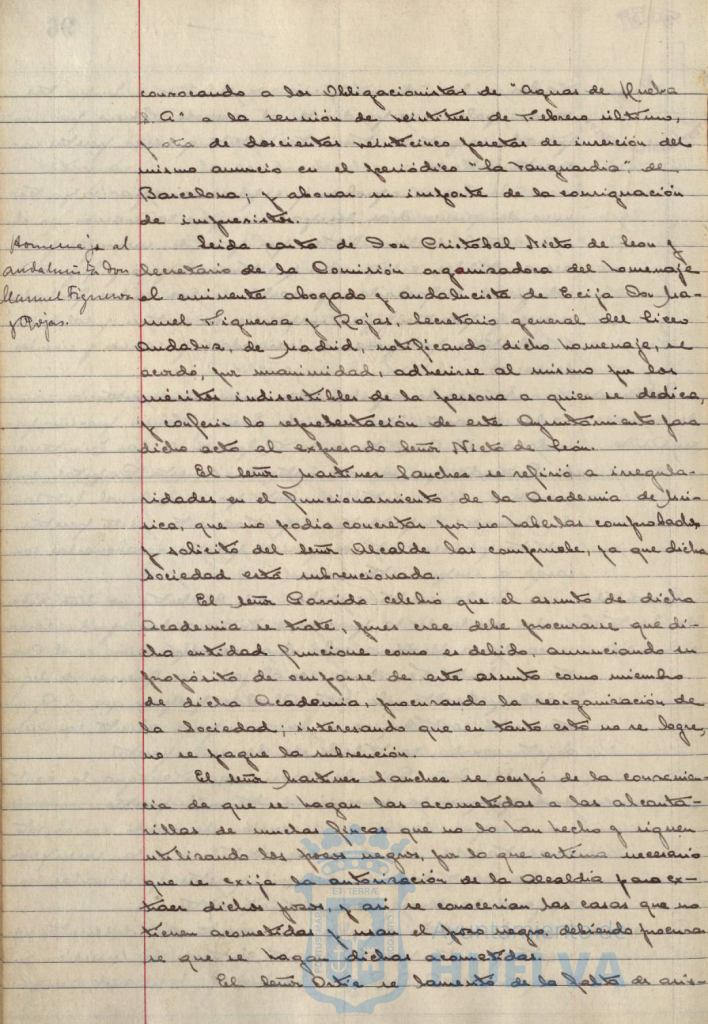 convocando a los Obligacionistas de "Aguas de Huelva
S.A" a la reunión de veintitrés de Febrero último,
y otra de doscientas veinticinco pesetas de inserción del
mismo anuncio en el periódico "La Vanguardia", de
Barcelona; y abonar su importe de la consignación
de imprevistos.
Homenaje al
andalucista Don
Manuel Figueroa
y Rojas.
Leida carta de Don Cristóbal Nieto de León y
Secretario de la Comisión organizadora del homenaje
al eminente abogado y andalucista de Ecija Don Ma-
nuel Figueroa y Rojas, Secretario general del Liceo
Andaluz, de Madrid, notificando dicho homenaje, se
acordó, por unanimidad, adherirse al mismo por los
méritos indiscutibles de la persona a quien se dedica,
y conferir la representación de este Ayuntamiento para
dicho acto al expresado Señor Nieto de León.
El Señor Martinez Sanchez se refirió a irregula-
ridades en el funcionamiento de la Academia de Mú-
sica, que no podia concretar por no haberlas comprobado,
y solicitó del Señor Alcalde las compruebe, ya que dicha
sociedad está subvencionada.
El Señor Garrido celebró que el asunto de dicha
Academia se trate, pues cree debe procurarse que di-
cha entidad funcione como es debido, anunciando su
propósito de ocuparse de este asunto como miembro
de dicha Academia, procurando la reorganización de
la Sociedad; interesando que en tanto esto no se logre,
no se pague la subvención.
El Señor Martinez Sanchez se ocupó de la convenien-
cia de que se hagan las acometidas a las alcanta-
rillas de muchas fincas que no lo han hecho y siguen
utilizando los pozos negros, por lo que estima necesario
que se exija la autorización de la Alcaldía para ex-
traer dichos pozos, y asi se conocerian las casas que no
tienen acometidas y usan el pozo negro, debiendo procurar-
se que se hagan dichas acometidas.
HUELVA
El Señor Ortiz se lamentó de la falta de asis-